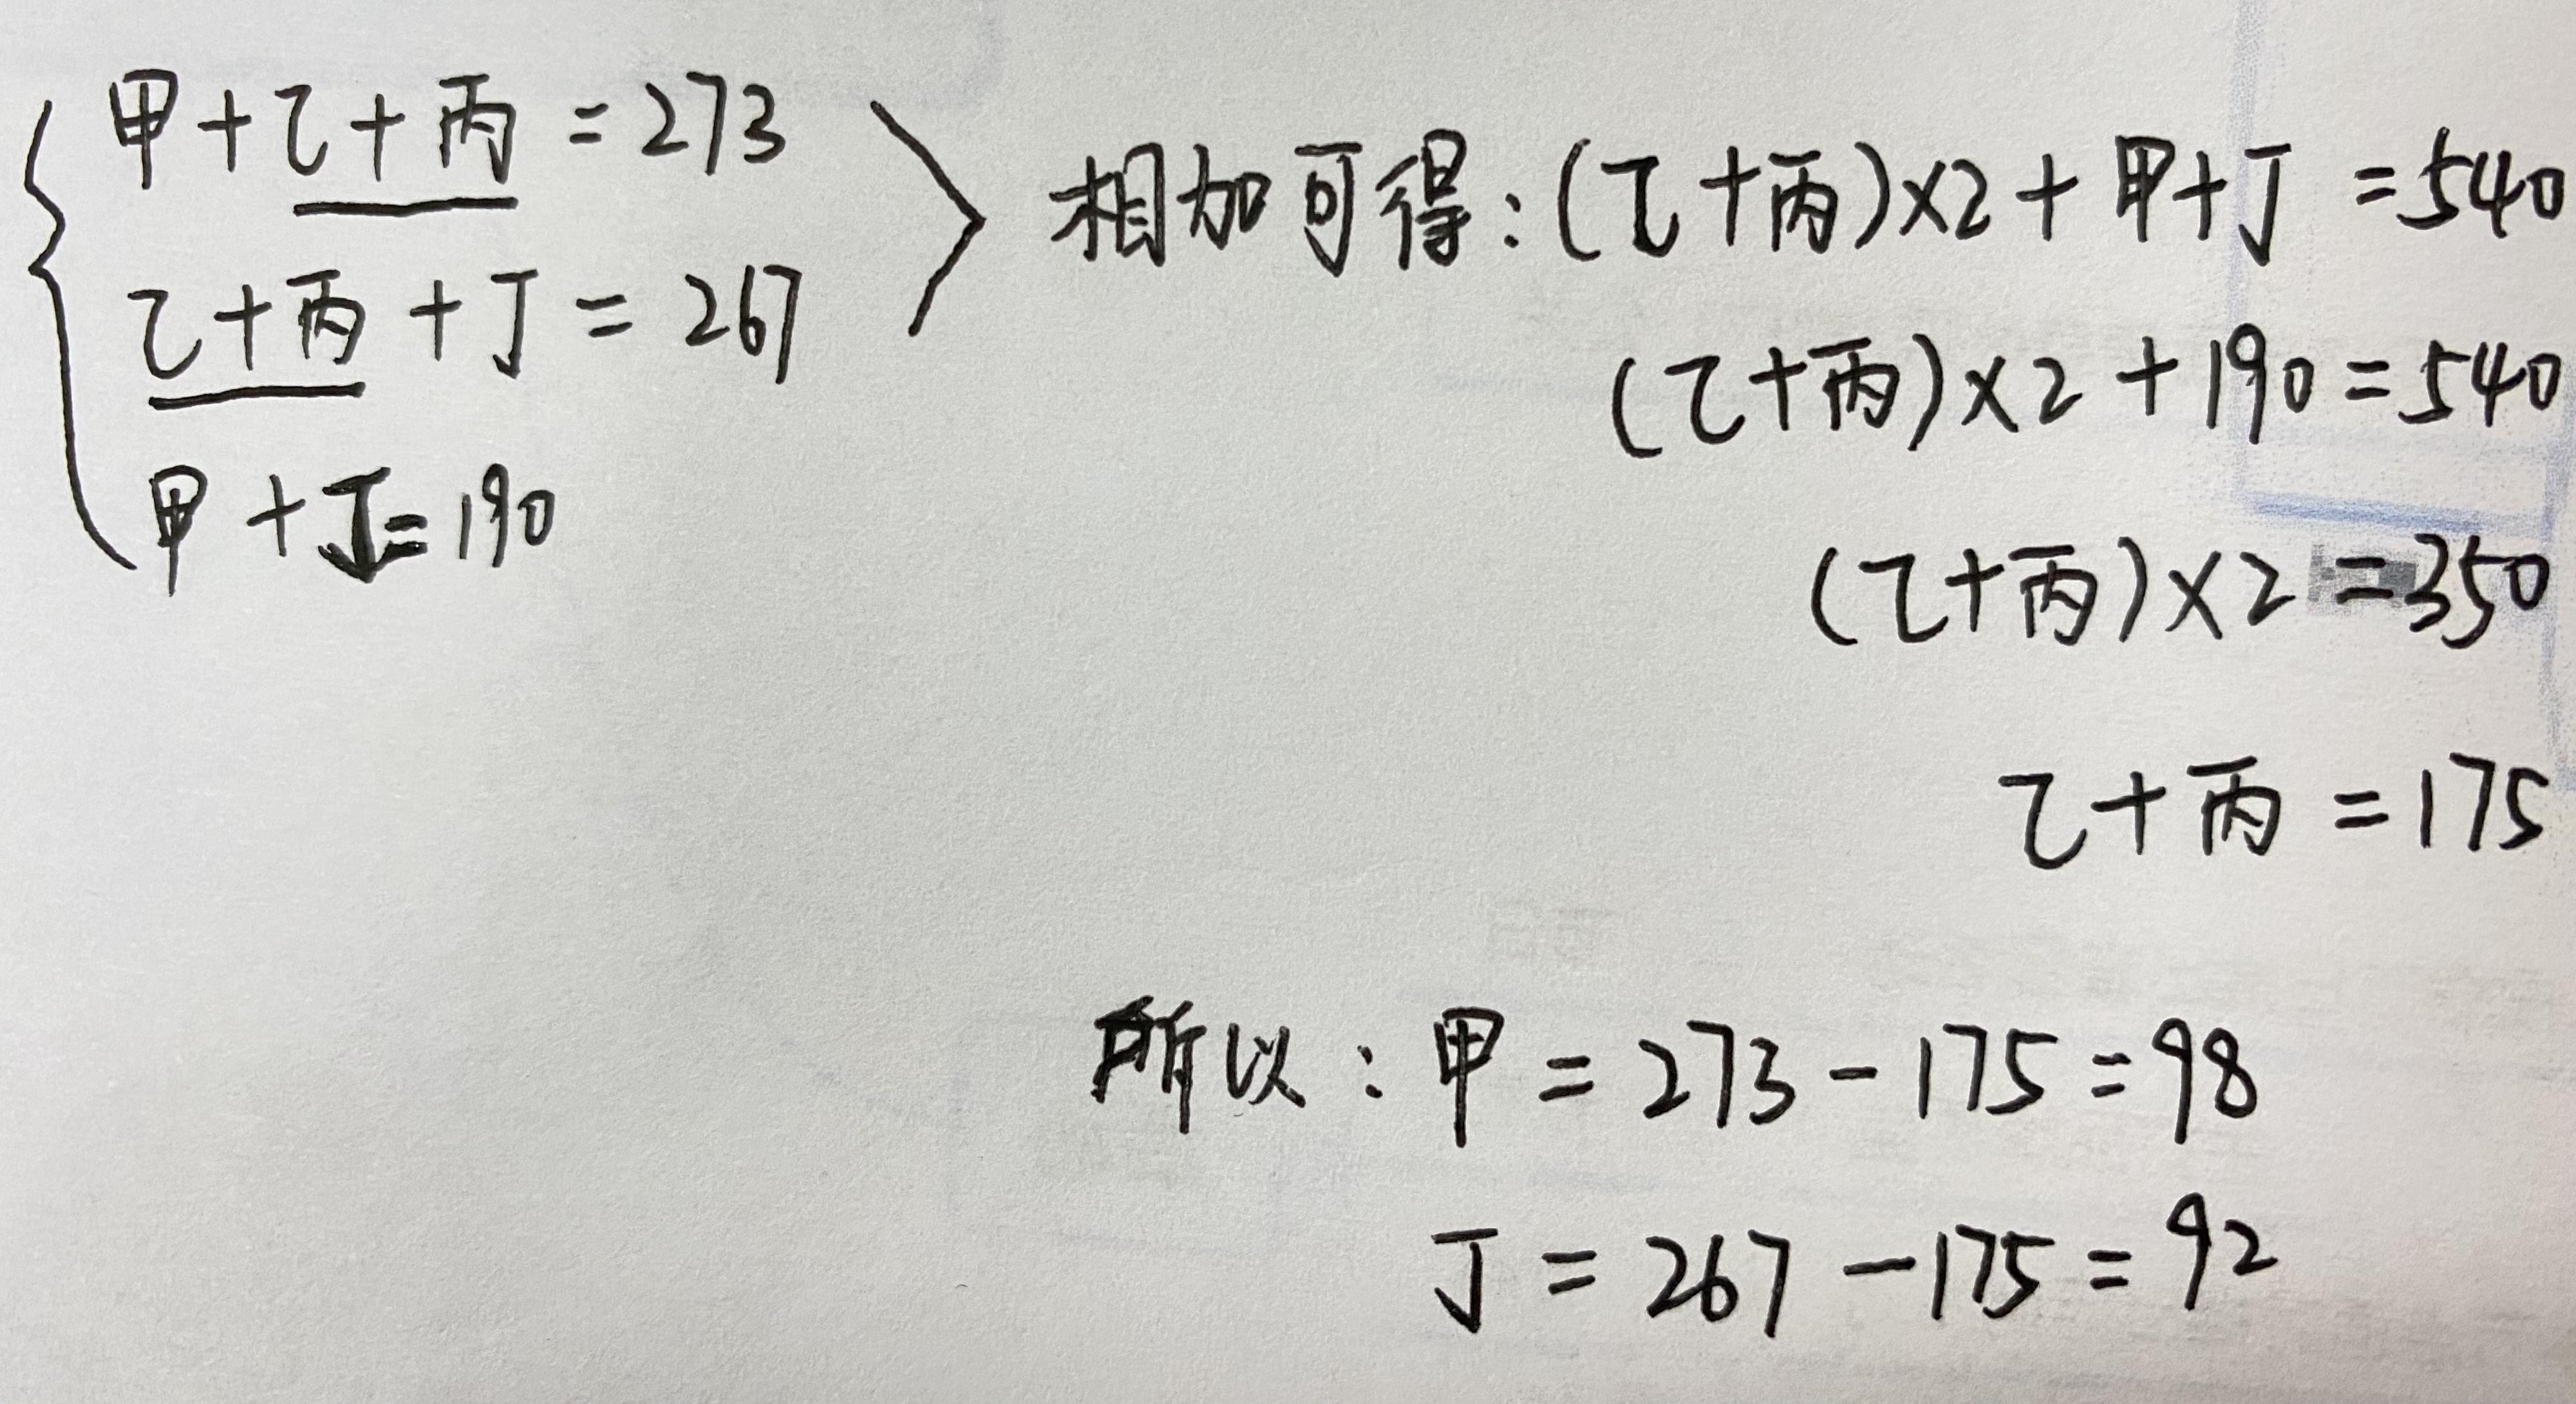 甲+乙+丙=273
乙+丙+丁=267
甲+丁=190
相加可得:(乙+丙)×2+甲+丁=540
(乙+丙)×2+190=540
(乙+丙)×2=350
乙+丙=175
所以:甲=273-175=98
丁=267-175=92